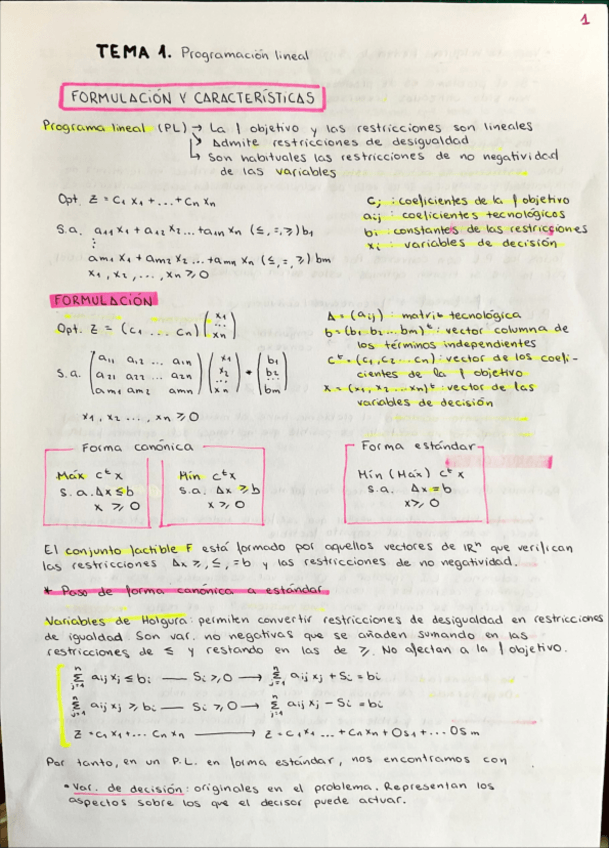 1
TEMA 1. Programación lineal
FORMULACIÓN Y CARACTERÍSTICAS
Programa lineal (PL) → La f objetivo y las restricciones son lineales
↳ Admite restricciones de desigualdad
↳ Son habituales las restricciones de no negatividad
de las variables
Opt. Z = C1 X1 + ... + Cn Xn
S.a. a11 X1 + a12 X2 ... + a1n Xn (≤, =, ≥) b1
⋮
am1 X1 + am2 X2 ... + amn Xn (≤, =, ≥) bm
X1, X2, ..., Xn ≥ 0
Cj : coeficientes de la f objetivo
aij : coeficientes tecnológicos
bi : constantes de las restricciones
xi : variables de decisión
FORMULACIÓN
Opt. Z = (C1 ... Cn) (X1 ... Xn)
S.a. (a11 a12 ... a1n
a21 a22 ... a2n
am1 am2 amn) (X1 X2 ... Xn) * (b1 b2 ... bm)
X1, X2 ..., Xn ≥ 0
A = (aij) : matriz tecnológica
b = (b1 b2 ... bm)ᵗ : vector columna de
los términos independientes
cᵗ = (C1, C2 ... Cn) : vector de los coefi-
cientes de la f objetivo
X = (X1, X2 ... Xn)ᵗ : vector de las
variables de decisión
Forma canónica
Máx cᵗ x
s.a. Ax ≤ b
x ≥ 0
Mín cᵗ x
s.a. Ax ≥ b
x ≥ 0
Forma estándar
Mín (Máx) cᵗ x
s.a. Ax = b
x ≥ 0
El conjunto factible F está formado por aquellos vectores de ℝⁿ que verifican
las restricciones Ax ≥, ≤, = b y las restricciones de no negatividad.
* Paso de forma canónica a estándar
Variables de Holgura: permiten convertir restricciones de desigualdad en restricciones
de igualdad. Son var. no negativas que se añaden sumando en las
restricciones de ≤ y restando en las de ≥. No afectan a la f objetivo.
n Σ j=1 aij xj ≤ bi — Si ≥ 0 → n Σ j=1 aij xj + Si = bi
n Σ j=1 aij xj ≥ bi — Si ≥ 0 → n Σ j=1 aij xj - Si = bi
Z = C1 X1 + ... Cn Xn → Z = C1 X1 ... + Cn Xn + 0S1 + ... 0Sm
Por tanto, en un P.L. en forma estándar, nos encontramos con
• Var. de decisión: originales en el problema. Representan los
aspectos sobre los que el decisor puede actuar.